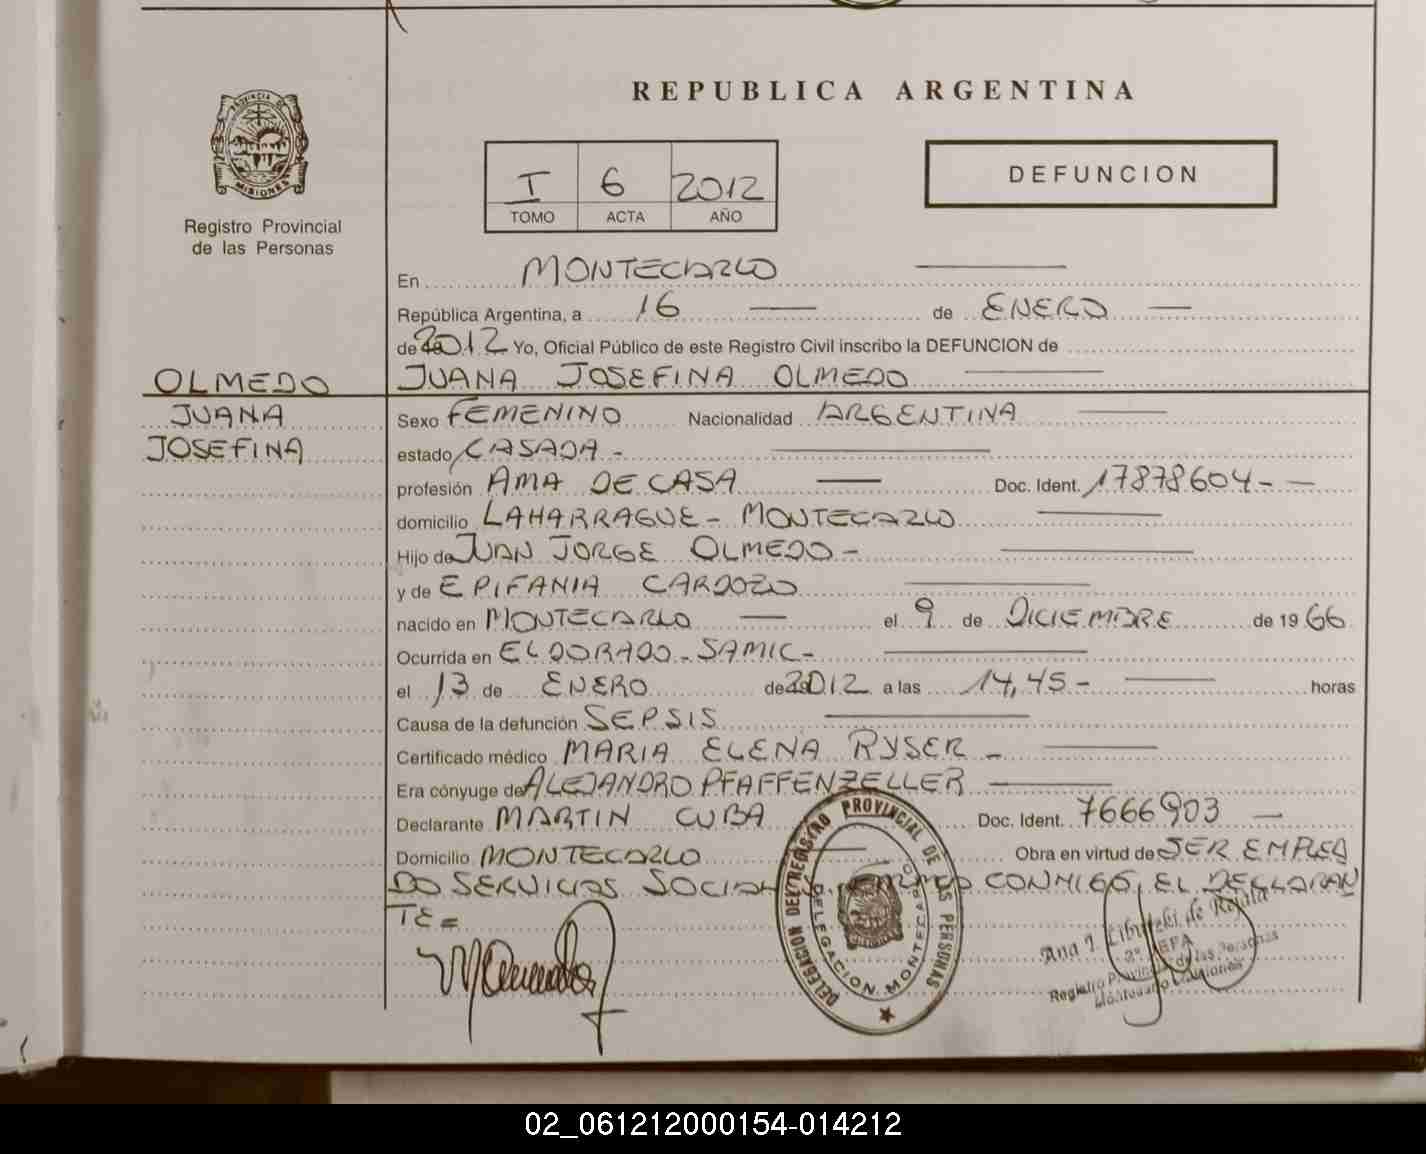 REPUBLICA ARGENTINA
PROVINCIA DE MISIONES
Registro Provincial
de las Personas
I 6 2012
TOMO ACTA AÑO
DEFUNCION
En MONTECARLO
República Argentina, a 16 de ENERO
de 2012 Yo, Oficial Público de este Registro Civil inscribo la DEFUNCION de
JUANA JOSEFINA OLMEDO
OLMEDO
JUANA
JOSEFINA
Sexo FEMENINO Nacionalidad ARGENTINA
estado CASADA -
profesión AMA DE CASA Doc. Ident. 17878604 -
domicilio LAHARRAGUE - MONTECARLO
Hijo de JUAN JORGE OLMEDO -
y de EPIFANIA CARDOZO
nacido en MONTECARLO el 9 de DICIEMBRE de 1966
Ocurrida en ELDORADO - SAMIC -
el 13 de ENERO de 2012 a las 14,45 - horas
Causa de la defunción SEPSIS
Certificado médico MARIA ELENA RYSER -
Era cónyuge de ALEJANDRO PFAFFENZELLER
Declarante MARTIN CUBA Doc. Ident. 7666903
Domicilio MONTECARLO Obra en virtud de SER EMPLEA
DO SERVICIOS SOCIALES FIRMAS CONMIGO, EL DECLARAN
TE =
DELEGACION DEL REGISTRO PROVINCIAL DE LAS PERSONAS
DELEGACION MONTECARLO
Ana I. de Rejala
2° JEFA
Registro Provincial de las Personas
Montecarlo Misiones
02_061212000154-014212